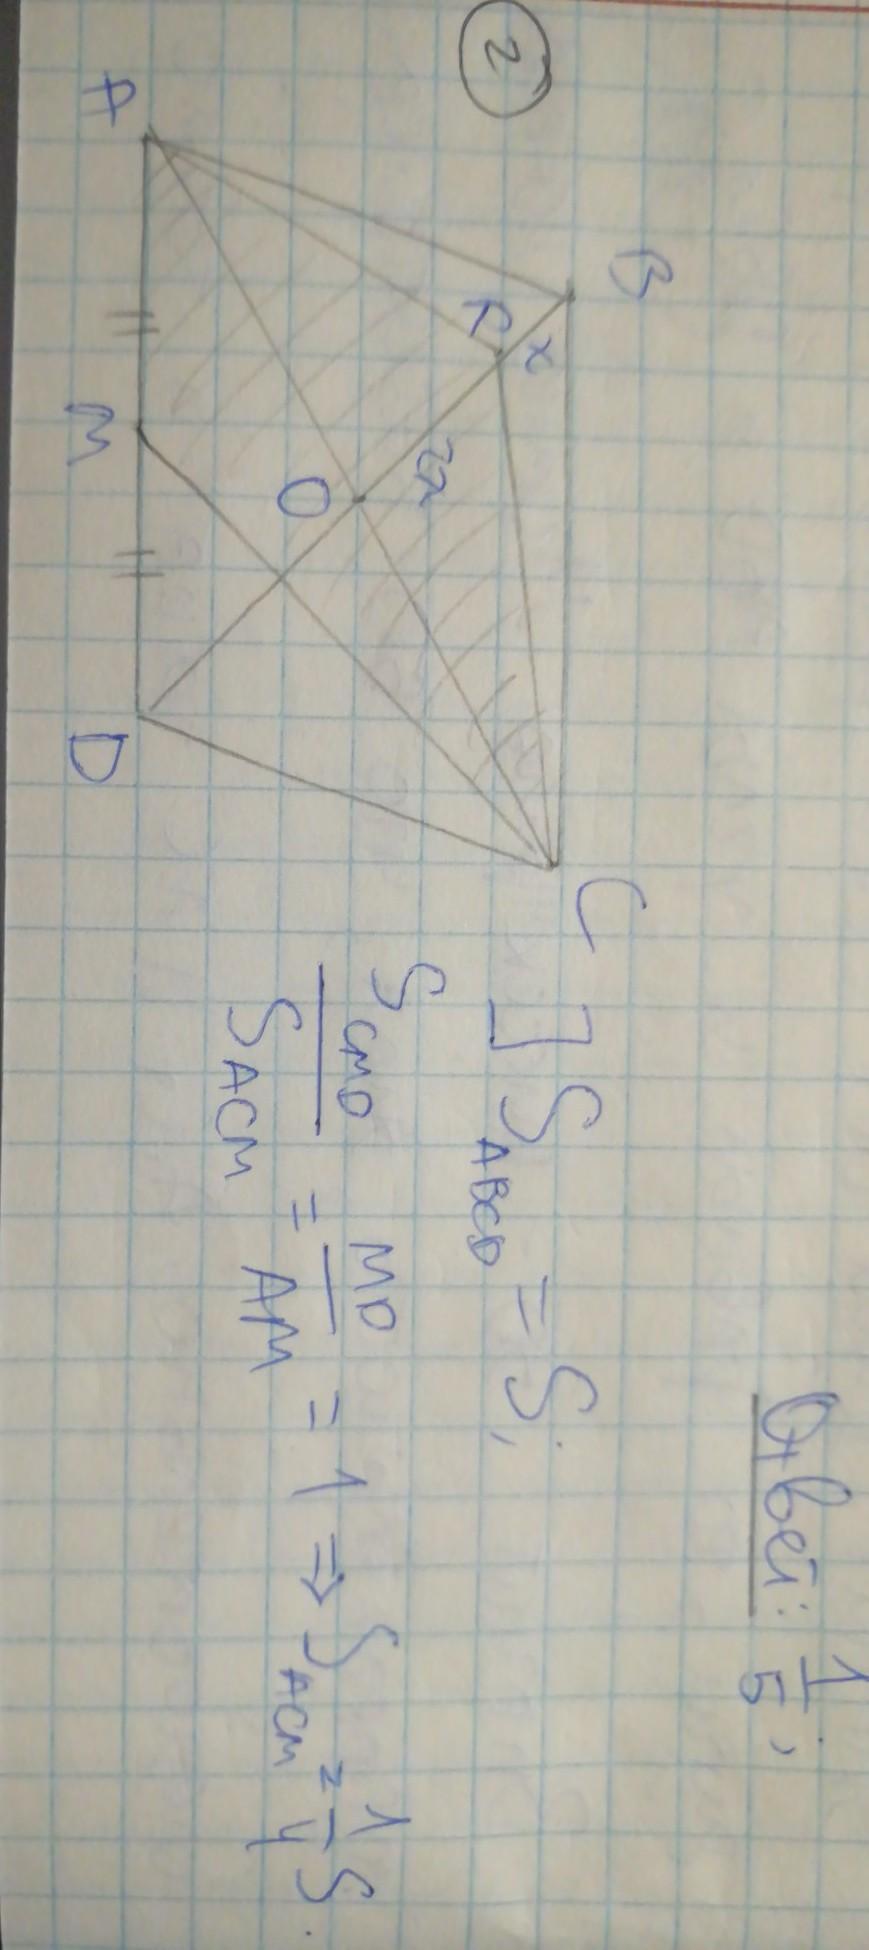 Ответ: 1/5;
2
B
C
P
x
2x
O
A
M
D
] S_ABCD = S,
S_CMD / S_ACM = MD / AM = 1 ⇒ S_ACM = 1/4 S.